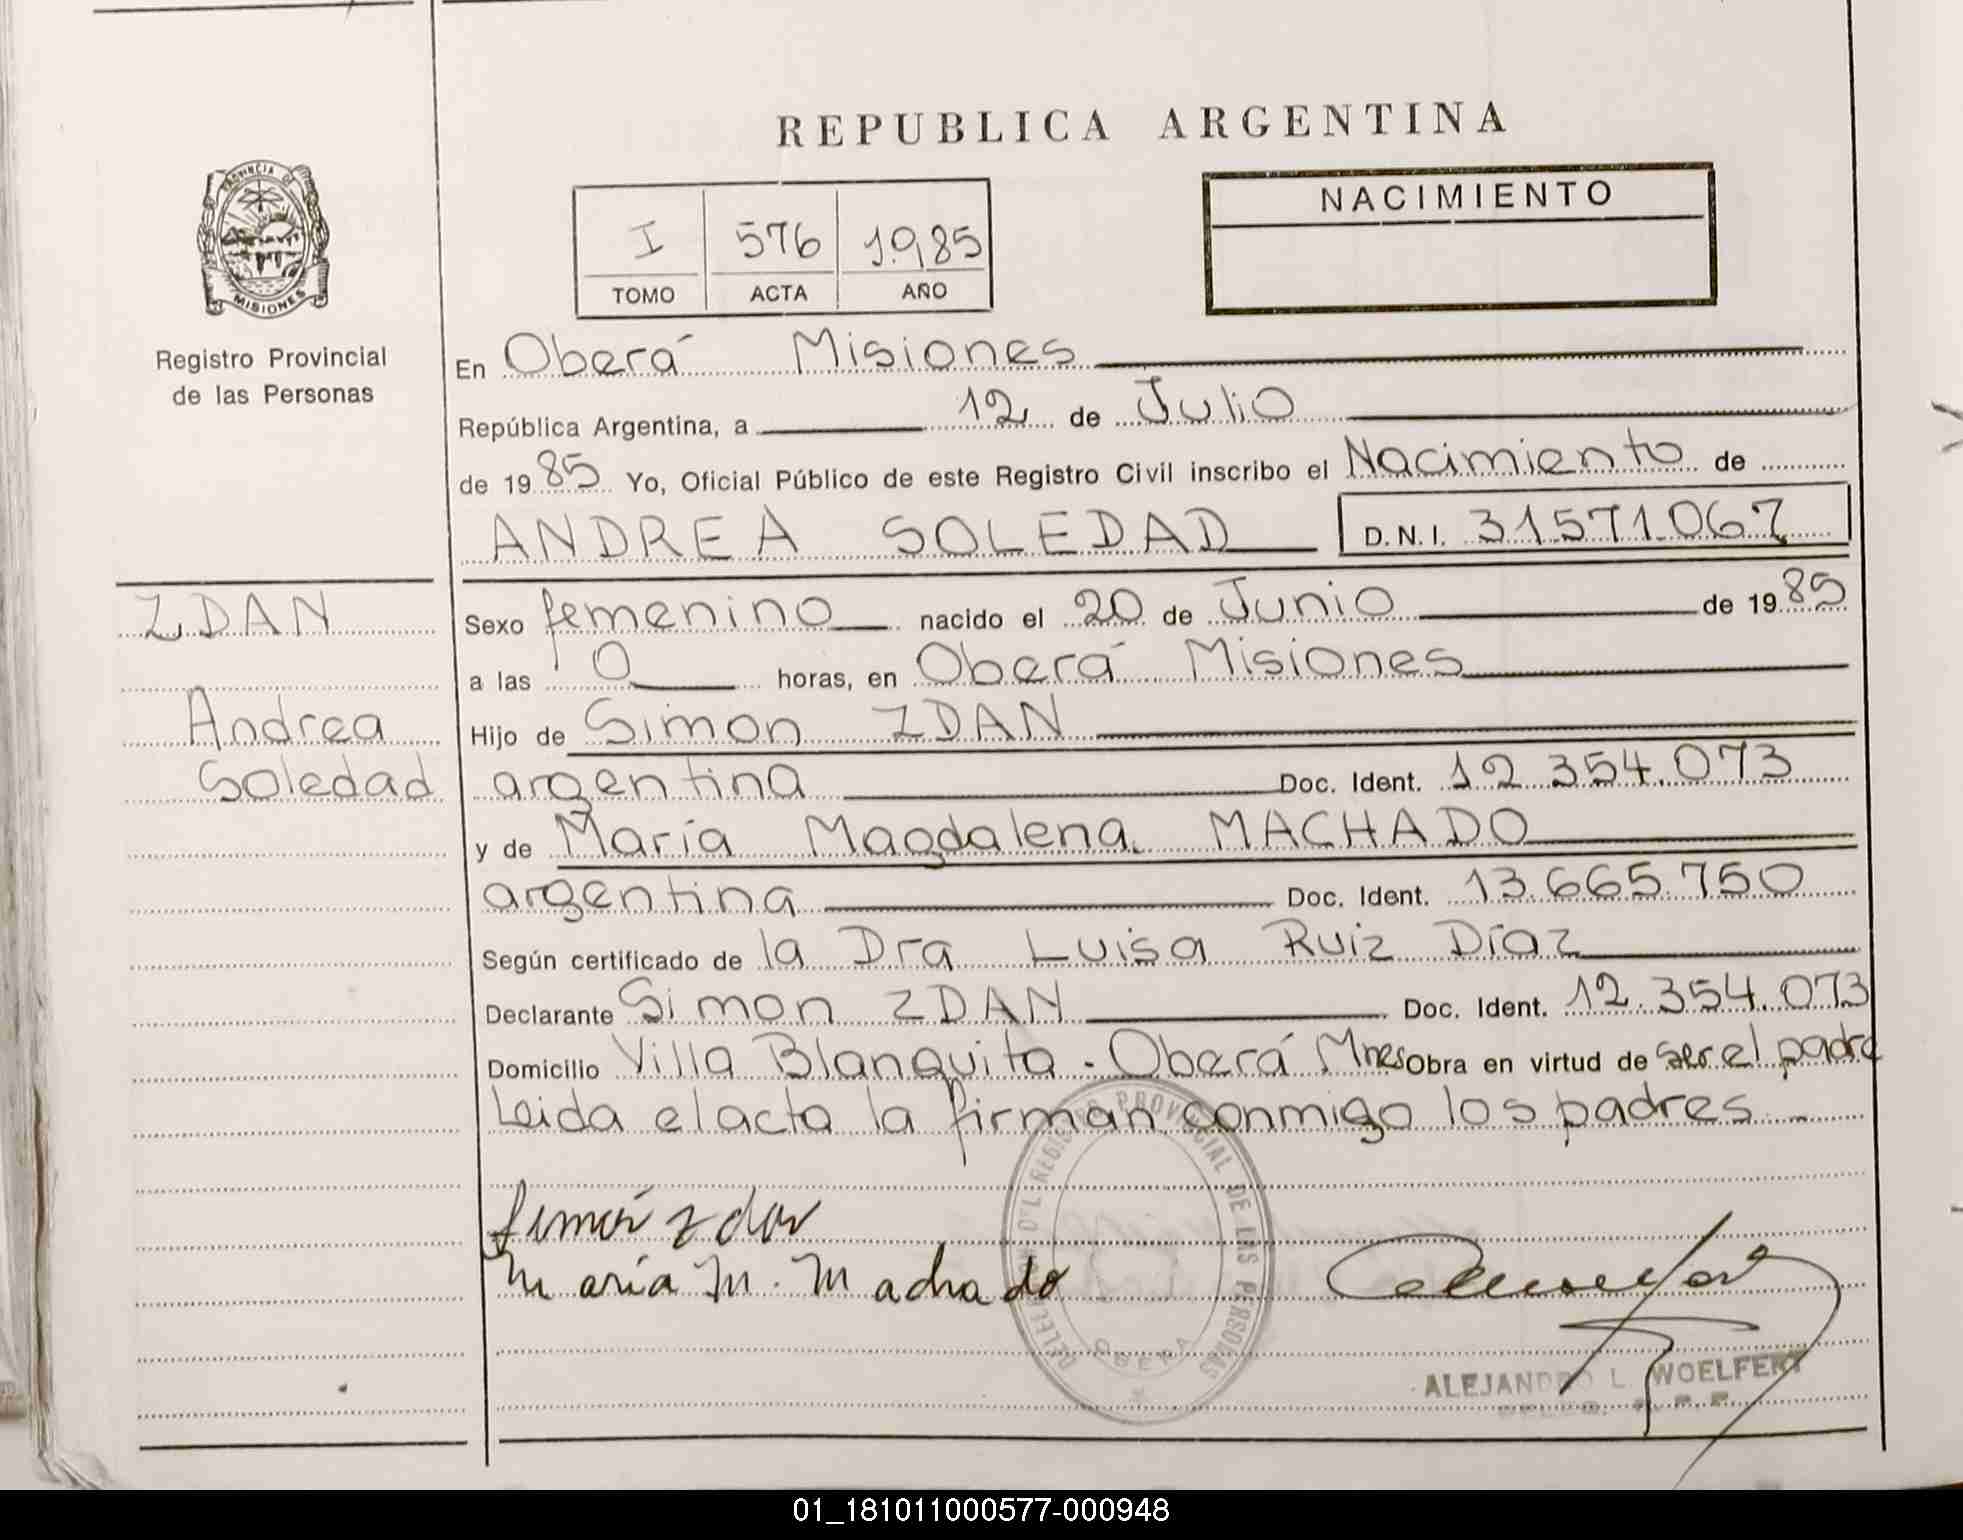 REPUBLICA ARGENTINA
PROVINCIA DE
MISIONES
Registro Provincial
de las Personas
I 576 1985
TOMO ACTA AÑO
NACIMIENTO
En Oberá Misiones
República Argentina, a 12 de Julio
de 1985 Yo, Oficial Público de este Registro Civil inscribo el Nacimiento de
ANDREA SOLEDAD D.N.I. 31.571.067
ZDAN
Andrea
Soledad
Sexo femenino nacido el 20 de Junio de 1985
a las 0 horas, en Oberá Misiones
Hijo de Simon ZDAN
argentina Doc. Ident. 12.354.073
y de María Magdalena MACHADO
argentina Doc. Ident. 13.665.750
Según certificado de la Dra Luisa Ruiz Díaz
Declarante Simon ZDAN Doc. Ident. 12.354.073
Domicilio Villa Blanquita - Oberá Mnes Obra en virtud de ser el padre
Leida el acta la firman conmigo los padres
Simón Zdan
María M. Machado
REGISTRO PROVINCIAL DE LAS PERSONAS
OBERA
ALEJANDRO L. WOELFERT
01_181011000577-000948